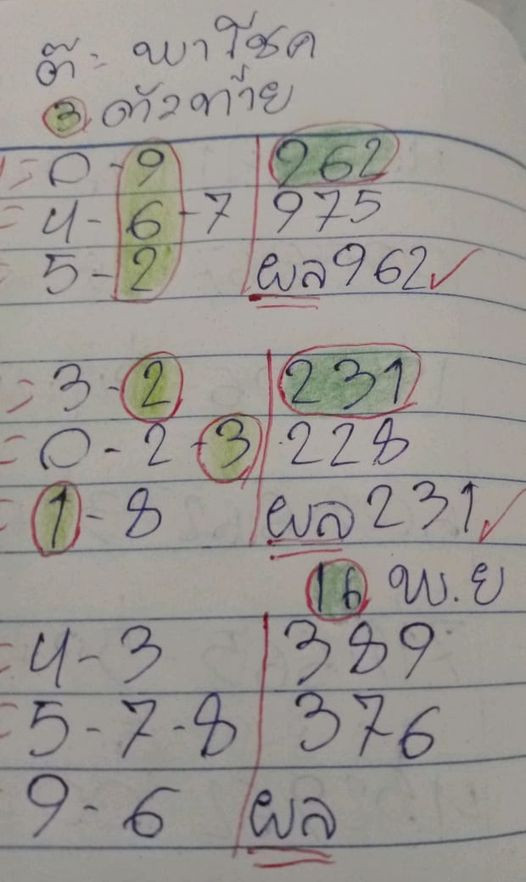 ต๊ะ พาโชค
3 ตัวท้าย
= 0 - 9 962
= 4 - 6 - 7 975
= 5 - 2 ผล 962 ✓
= 3 - 2 231
= 0 - 2 - 3 228
= 1 - 8 ผล 231 ✓
16 พ.ย
= 4 - 3 389
= 5 - 7 - 8 376
9 - 6 ผล